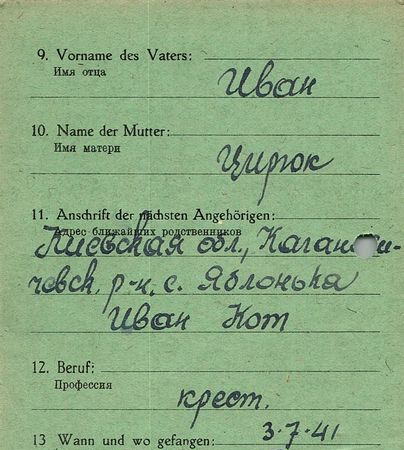 9. Vorname des Vaters:
Имя отца
Иван
10. Name der Mutter:
Имя матери
Цирюк
11. Anschrift der nächsten Angehörigen:
Адрес ближайших родственников
Киевская обл., Кагано-
чевск. р-н, с. Яблонька
Иван Кот
12. Beruf:
Профессия
крест.
13 Wann und wo gefangen: 3.7.41